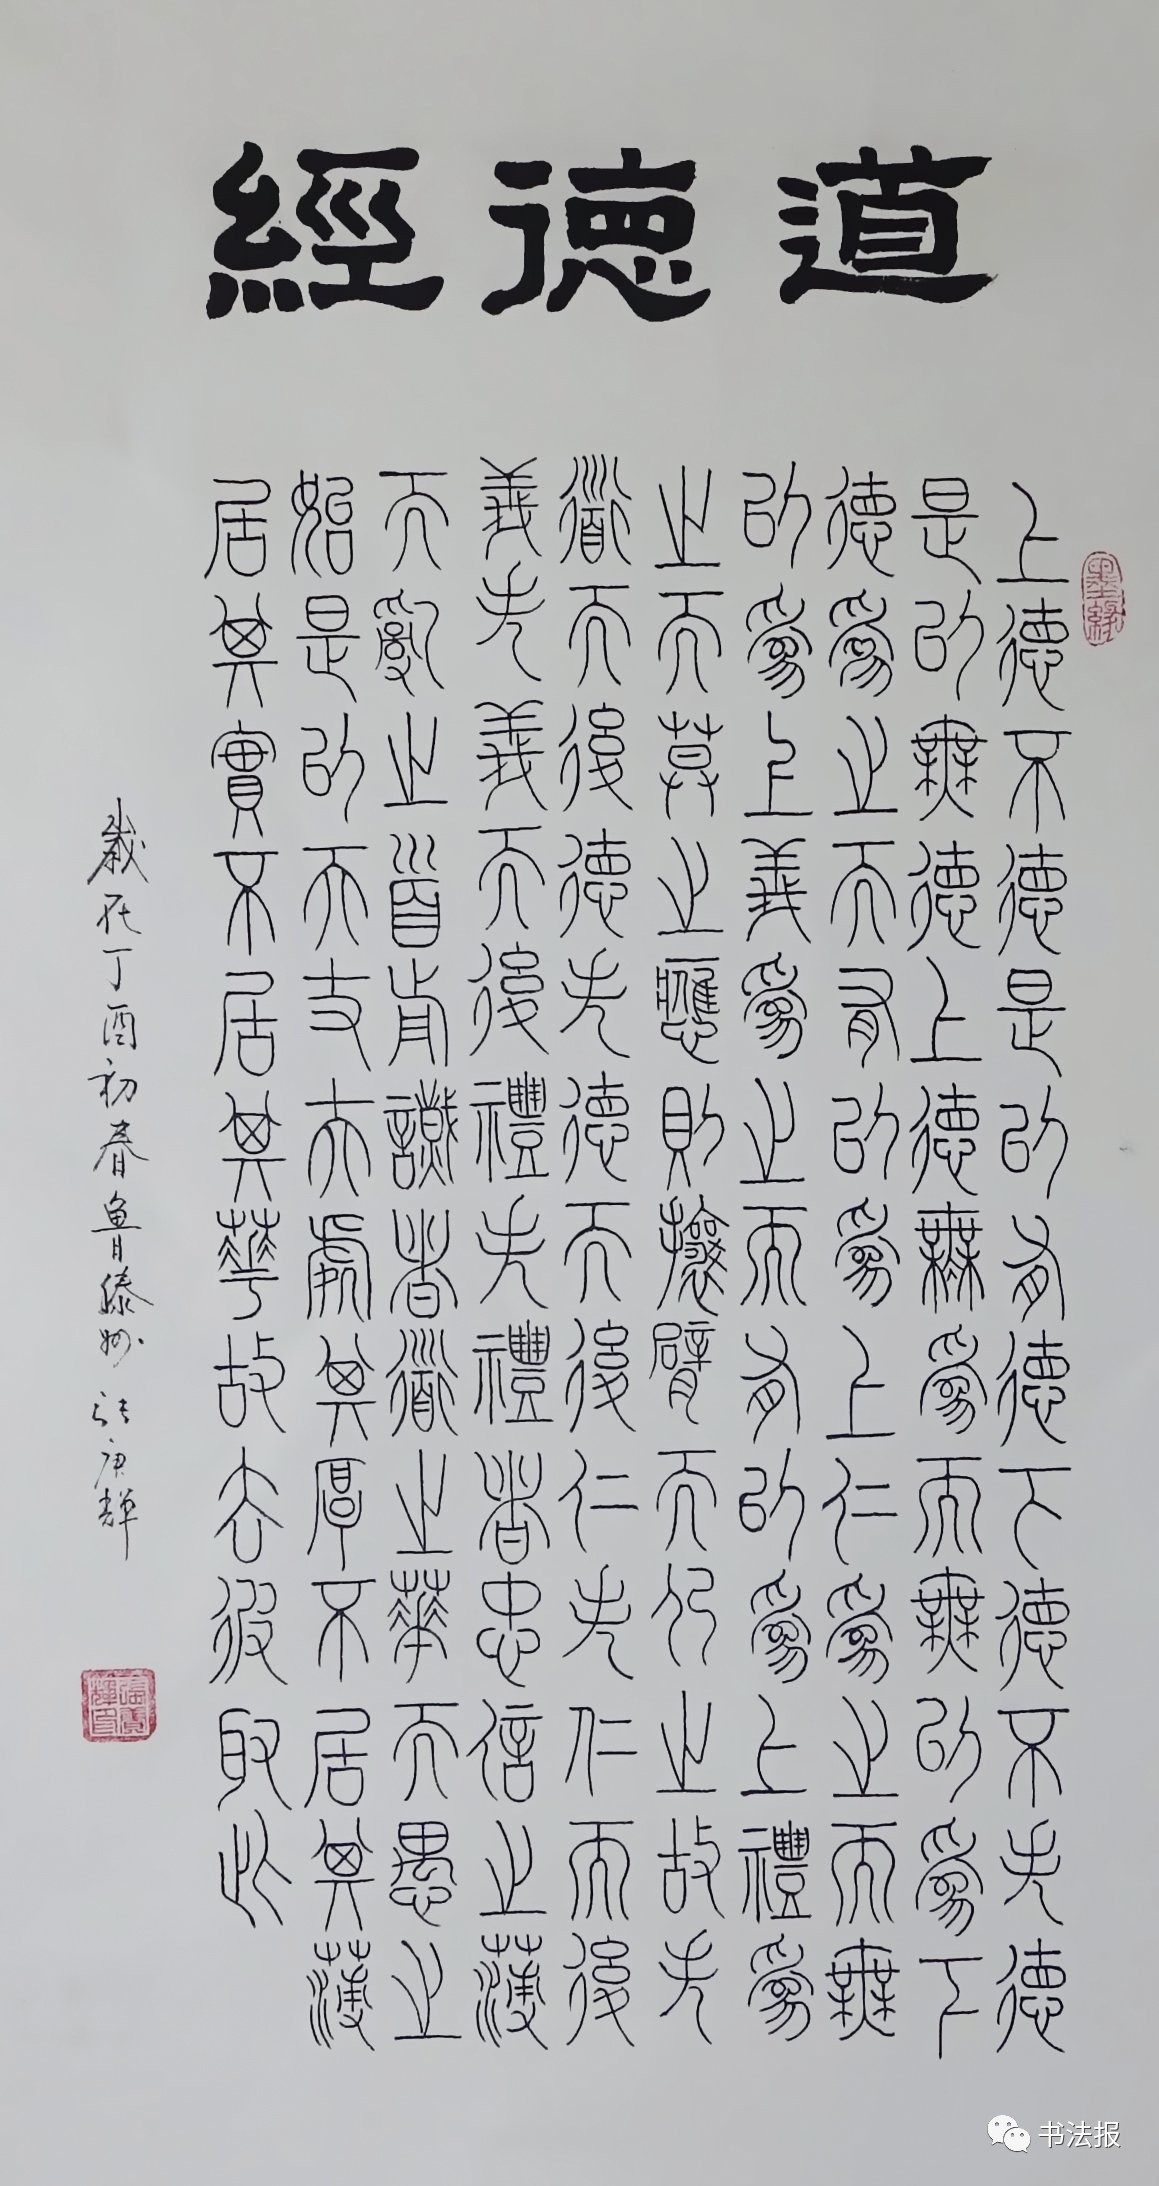 道德經
上德不德是以有德下德不失德
是以無德上德無爲而無以爲下
德爲之而有以爲上仁爲之而無
以爲上義爲之而有以爲上禮爲
之而莫之應則攘臂而仍之故失
道而後德失德而後仁失仁而後
義失義而後禮失禮者忠信之薄
而亂之首前識者道之華而愚之
始是以大丈夫處其厚不居其薄
居其實不居其華故去彼取此
歲在丁酉初春魯滕州張庚輝
墨緣
书法报